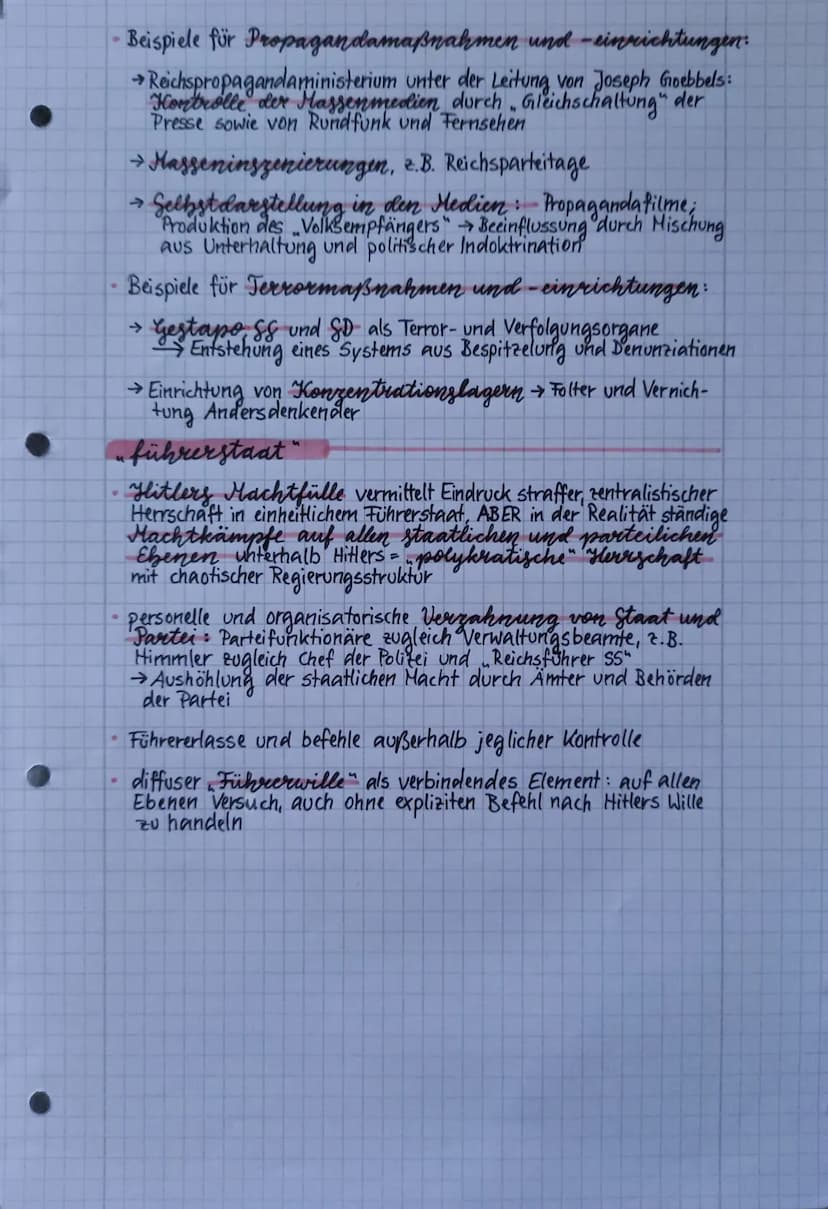 • Beispiele für Propagandamaßnahmen und -einrichtungen:
→ Reichspropagandaministerium unter der Leitung von Joseph Goebbels:
Kontrolle der Massenmedien durch „Gleichschaltung" der
Presse sowie von Rundfunk und Fernsehen
→ Masseninszenierungen, z.B. Reichsparteitage
→ Selbstdarstellung in den Medien: Propagandafilme;
Produktion des „Volksempfängers" → Beeinflussung durch Mischung
aus Unterhaltung und politischer Indoktrination
• Beispiele für Terrormaßnahmen und -einrichtungen:
→ Gestapo, SS und SD als Terror- und Verfolgungsorgane
⟶ Entstehung eines Systems aus Bespitzelung und Denunziationen
→ Einrichtung von Konzentrationslagern → Folter und Vernich-
tung Andersdenkender
„führerstaat"
• Hitlers Machtfülle vermittelt Eindruck straffer, zentralistischer
Herrschaft in einheitlichem Führerstaat, ABER in der Realität ständige
Machtkämpfe auf allen staatlichen und parteilichen
Ebenen unterhalb Hitlers = „polykratische" Herrschaft
mit chaotischer Regierungsstruktur
• personelle und organisatorische Verzahnung von Staat und
Partei: Parteifunktionäre zugleich Verwaltungsbeamte, z.B.
Himmler zugleich Chef der Polizei und „Reichsführer SS"
→ Aushöhlung der staatlichen Macht durch Ämter und Behörden
der Partei
• Führererlasse und befehle außerhalb jeglicher Kontrolle
• diffuser „Führerwille" als verbindendes Element: auf allen
Ebenen Versuch, auch ohne expliziten Befehl nach Hitlers Wille
zu handeln